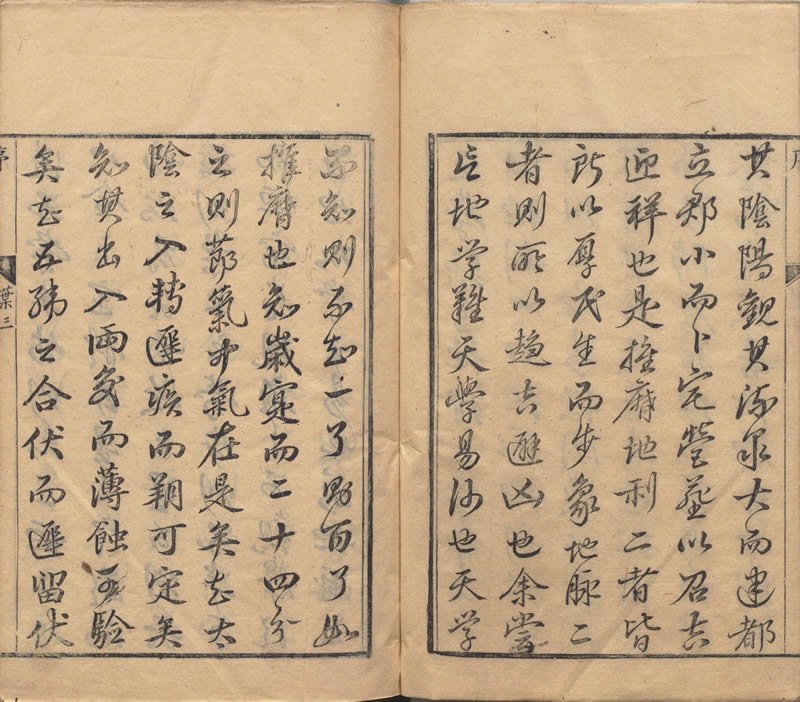 其陰陽觀其流泉大而建都
立郡小而卜宅營墓以召吉
迎祥也是推曆地利二者皆
所以厚民生而步象地脉二
者則所以趨吉避凶也余嘗
言地学難天學易何也天学
不知則不知一了則百了如
推曆也知歲寔而二十四分
之則節氣中氣在是矣知太
陰之入轉遲疾而朔可定矣
知其出入兩交而薄蝕可驗
矣知五緯之合伏而遲留伏
序
葉三